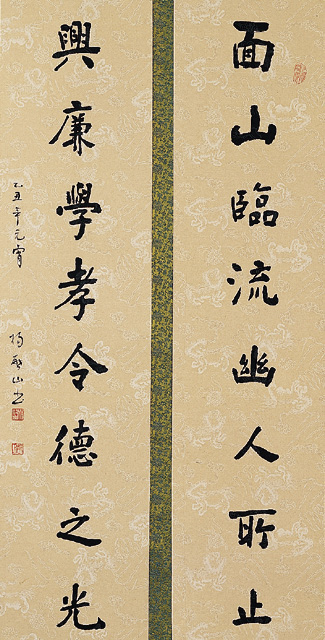 面山臨流幽人所止
興廉學孝令德之光
乙丑年元宵
楊啟山書